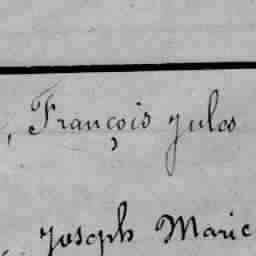 , François Jules
, Joseph Marie